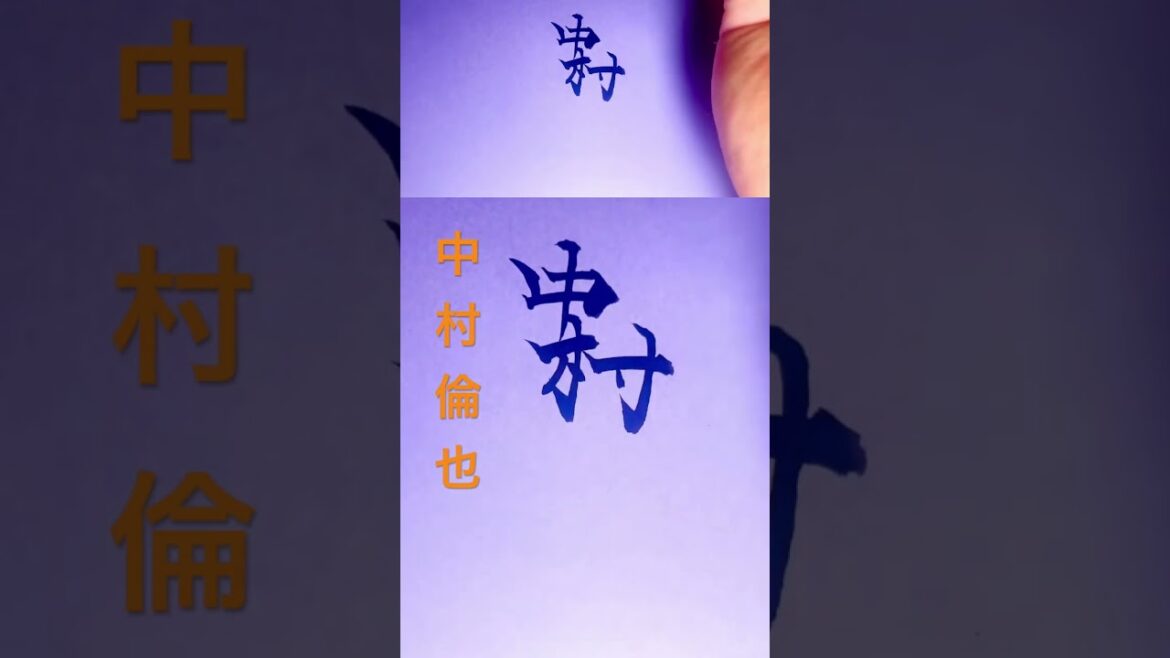 中村倫
中村
中村倫也
中村